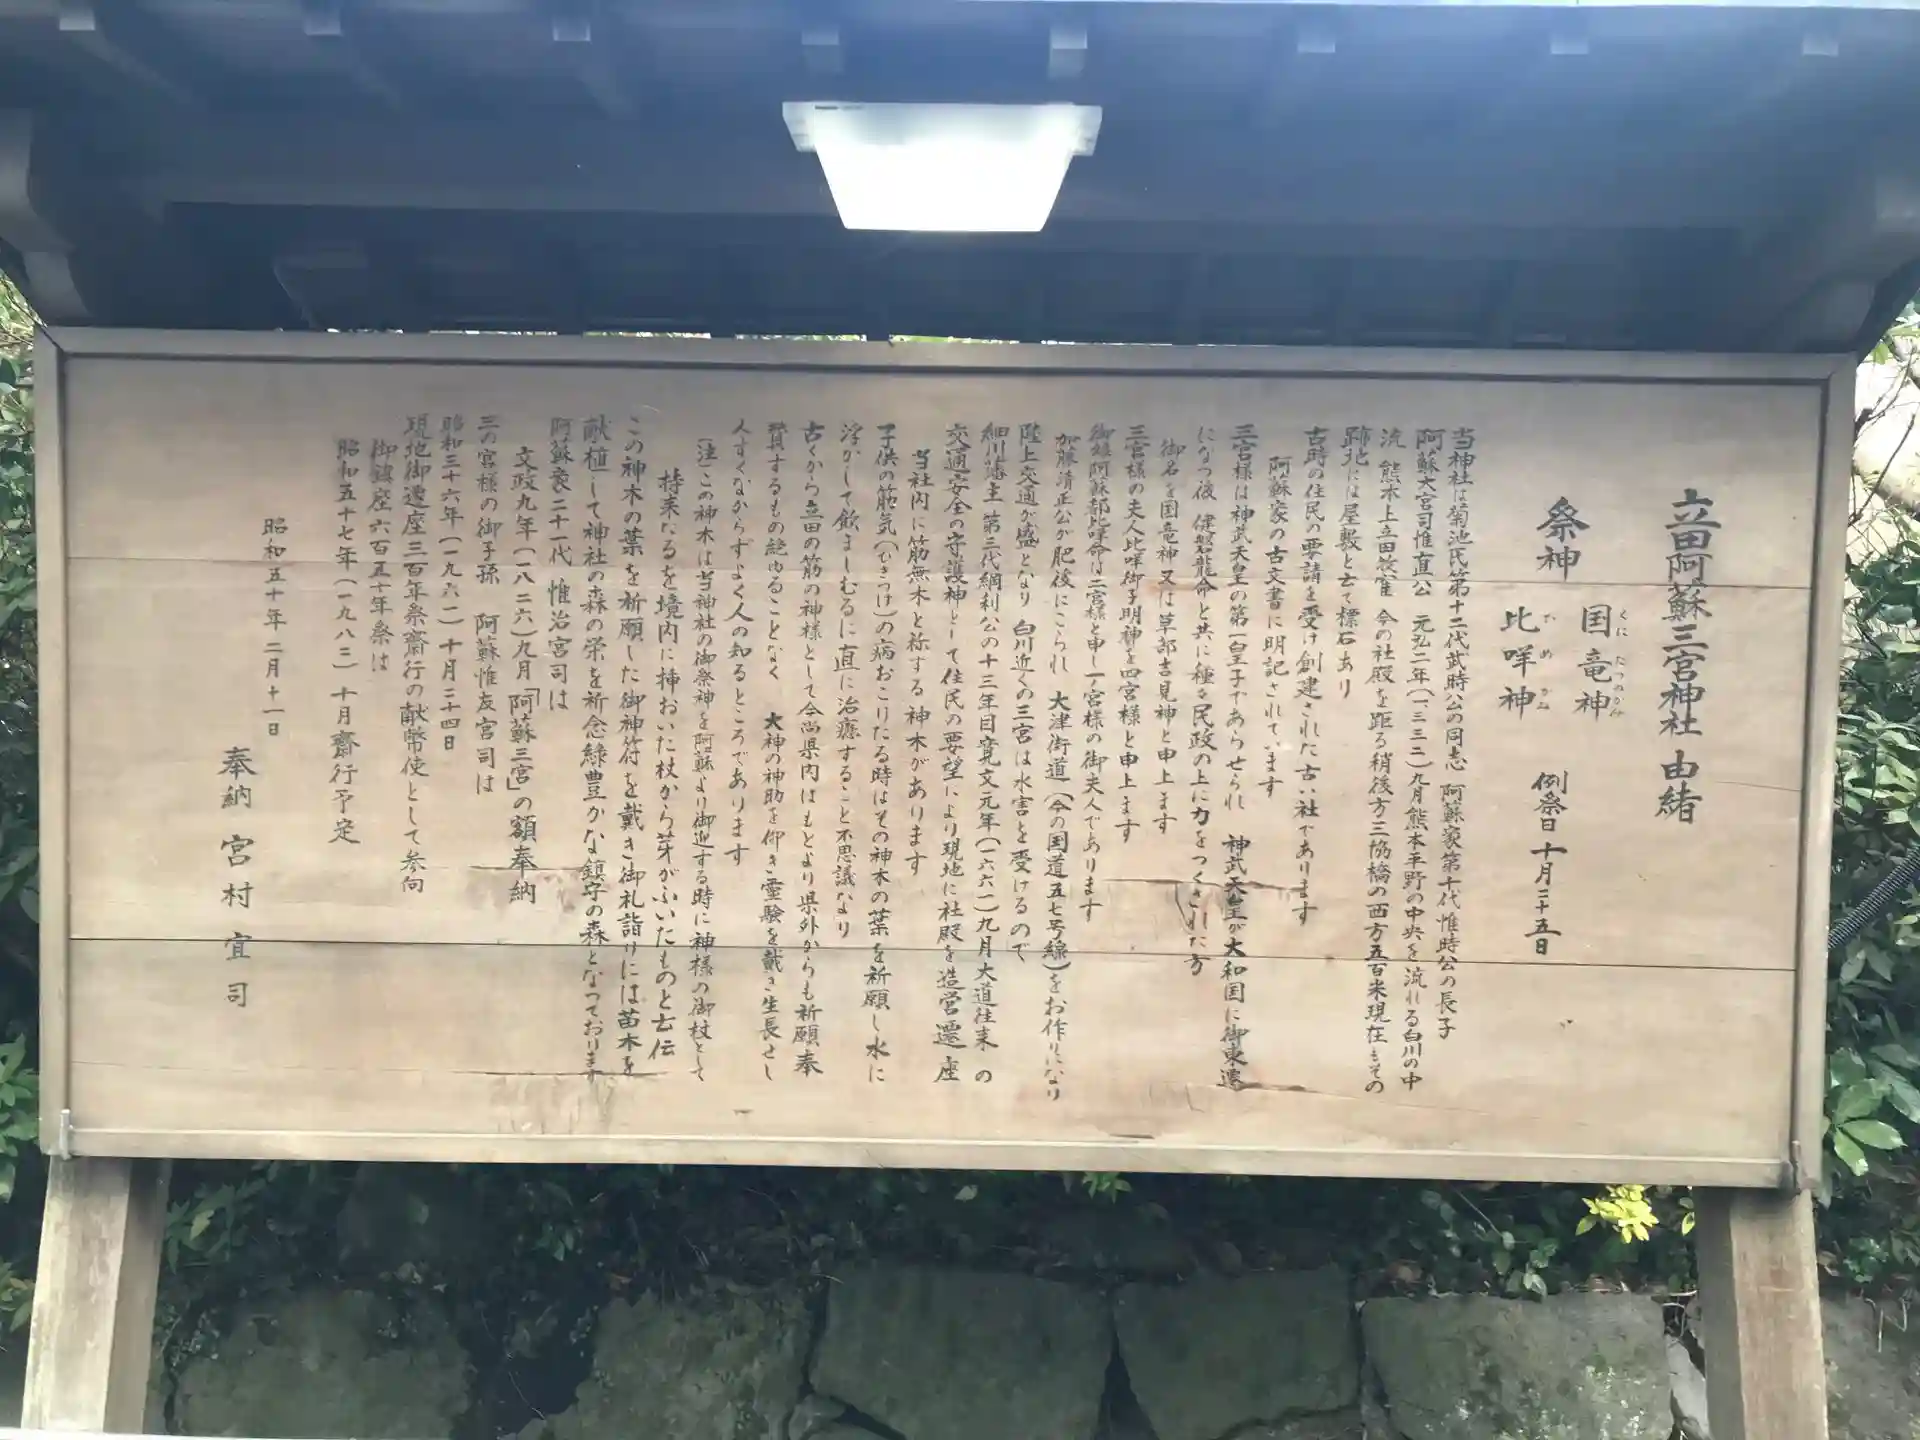 立田阿蘇三宮神社 由緒
祭神
国竜神
くに たつのかみ
比咩神
ひ め かみ
例祭日 十月二十五日
当神社は菊池氏第十二代武時公の同志 阿蘇家第十代惟時公の長子
阿蘇大宮司惟直公 元弘二年(一三三二)九月熊本平野の中央を流れる白川の中
流 熊本上立田 今の社殿を距る稍後方三協橋の西方五百米現在もその
跡地には屋敷と云て標石あり
古時の住民の要請を受け創建された古い社であります
阿蘇家の古文書に明記されています
三宮様は神武天皇の第一皇子であらせられ 神武天皇が大和国に御東遷
になつ後 健磐龍命と共に種々民政の上に力をつくされた方
御名を国竜神又は草部吉見神と申上ます
三宮様の夫人比咩御子明神を四宮様と申上ます
御雄阿蘇都比咩命は二宮様と申し一宮様の御夫人であります
加藤清正公が肥後にこられ 大津街道(今の国道五七号線)をお作りになり
陸上交通が盛となり 白川近くの三宮は水害を受けるので
細川藩主 第三代綱利公の十三年目寛文元年(一六六一)九月大道往来 の
交通安全の守護神として住民の要望により現地に社殿を造営遷座
当社内に筋無木と称する神木があります
子供の筋気(ひきつけ)の病おこりたる時はその神木の葉を祈願し水に
浮かして飲ましむるに直に治癒すること不思議なり
古くから立田の筋の神様として今尚県内はもとより県外からも祈願奉
賛するもの絶ゆることなく 大神の神助を仰ぎ霊験を戴き生長せし
人すくなからずよく人の知るところであります
(注)この神木は当神社の御祭神を阿蘇より御迎する時に神様の御杖として
持来たるを境内に挿おいた杖から芽がふいたものと云伝
この神木の葉を祈願した御神符を戴き御礼詣りには苗木を
献植して神社の森の栄を祈念緑豊かな鎮守の森となつております
阿蘇家二十一代 惟治宮司は
文政九年(一八二六)九月「阿蘇三宮」の額奉納
三の宮様の御子孫 阿蘇惟友宮司は
昭和三十六年(一九六一)十月二十四日
現地御遷座三百年祭齋行の献幣使として参向
御鎮座六百五十年祭は
昭和五十七年(一九八二)十月齋行予定
昭和五十年二月十一日
奉納 宮村宜司